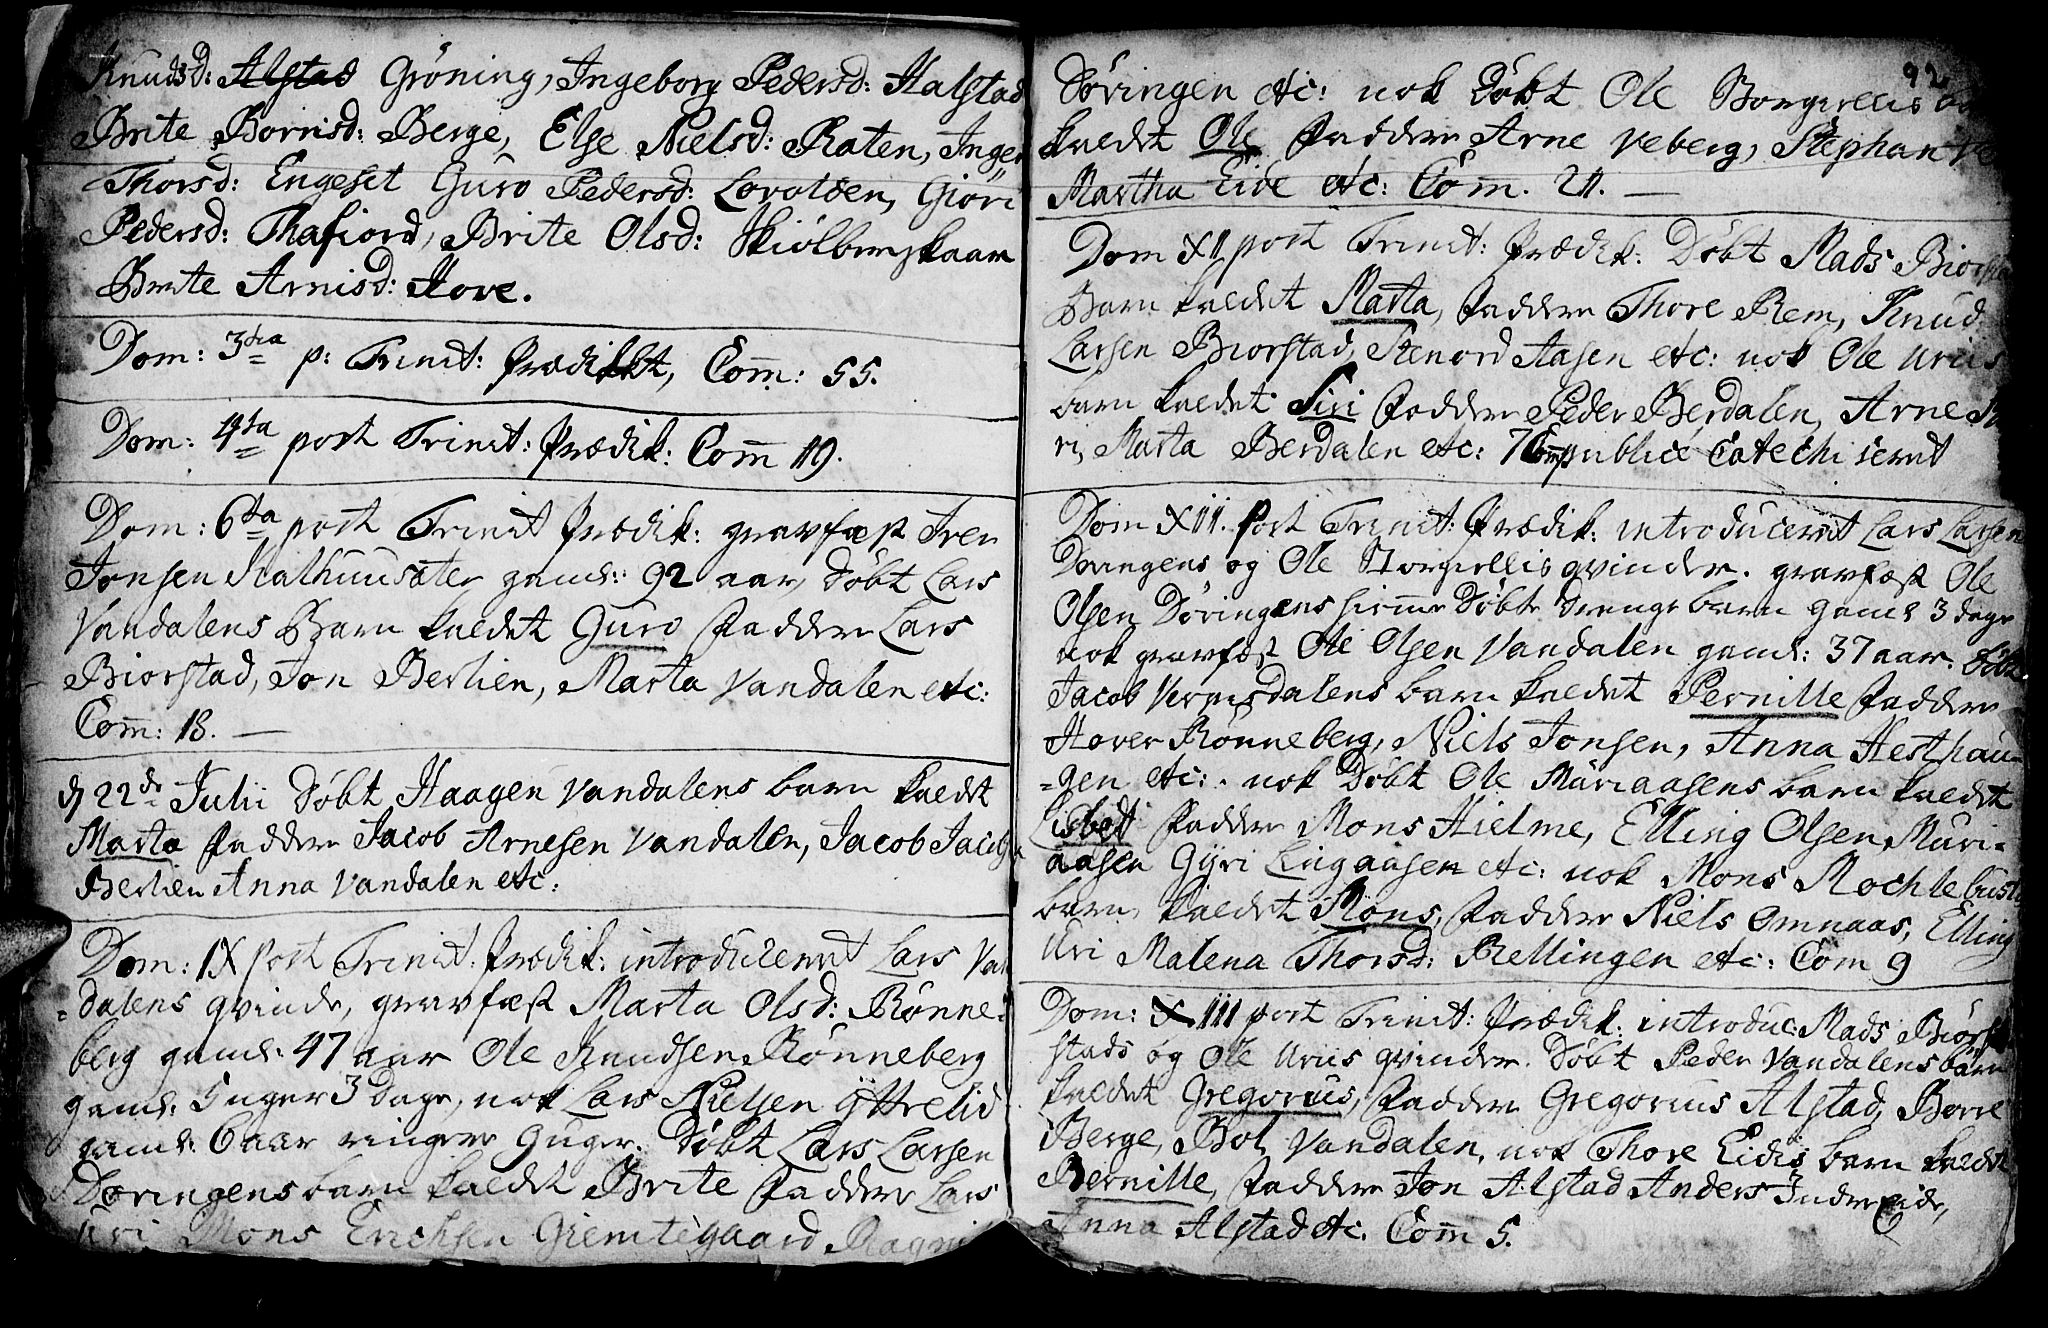 Knudsd: Alstad Gröning, Ingeborg Pedersd: Halstad
Brite Bornisd: Berge, Else Nielsd: Raten, Inger
Thorsd: Engeset Guro Pedersd: Lovolden, Giöri
Pedersd: Thafiord, Brite Olsd: Skiölbergskaar
Brite Arnisd: Hove.
Dom: 3tia p: Trinit: Prædikkt, Com: 55.
Dom: 4ta post Trinit: Prædik: Com 119.
Dom: 6ta post Trinit Prædik: gravfæst Iver
Jonsen gaml: 92 aar, Döbt Lars
Vandalens Barn kaldet Guro Faddere Lars
Biorstad, Jon Berlien, Marta Vandalen etc:
Com: 18.
d 22de Julii Döbt Haagen Vandalens barn kaldet
Marta Faddere Jacob Arnesen Vandalen, Jacob
Berlien Anna Vandalen etc:
Dom: IX post Trinit: Prædik: introduceret Lars Van
=dalens qvinde, gravfæst Marta Olsd: Rönne=
berg gaml: 47 aar Ole Knudsen Rönneberg
gaml: uger 3 Dage, nok Lars Nielsen Ÿttrelid
gaml: 6 aar ringere 9 uger. Döbt Lars Larsen
Döringens barn kaldet Brite Faddere Lars
Uri Mons Erichsen Giemtegaard
92
Döringen etc: nok Döbt Ole
kaldet Ole Faddere Arne Veberg, Stephan
Martha Eide etc: Com. 21.
Dom XI post Trinit: Prædik: Döbt Mads
Barn kaldet Marta, Faddere Thore Rem, Knud
Larsen Biorstad, Stenord Aasen etc: nok Ole Uriis
barn kaldet Siri Faddere Peder Berdalen, Arne
ri, Marta Berdalen etc: 7 Com publicè Catechiseret
Dom XII. Post Trinit: Prædik: introduceret Lars Larsen
Döringens og Ole qvinder. gravfæst Ole
Olsen Döringens hieme Döbte Drenge barn gaml 3 dage
nok gravfæst Ole Olsen Vandalen gaml: 37 aar. Döbt
Jacob barn kaldet Pernille Faddere
Hover Rönneberg, Niels Jonsen, Anna Hesthau-
=gen etc: nok Döbt Ole Muriaasens barn kaldet
Lisbet Faddere Mons Hielme, Elling Olsen Muri=
aasen Gÿri Lingaasen etc: nok Mons
barn kaldet Mons, Faddere Niels Omnaas, Elling
Uri Malena Thorsd: Rellingen etc: Com 9
Dom: XIII post Trinit: Prædik: introduc: Mads Biör
stads og Ole Uriis qvinder. Döbt Peder Vandalens barn
kaldet Gregorius, Faddere Gregorius Alstad, Borre
Berge, Bol Vandalen, nok Thore Eidis barn kaldet
Bernille, Faddere Jon Alstad Anders Indre Eide,
Anna Alstad etc. Com 5.